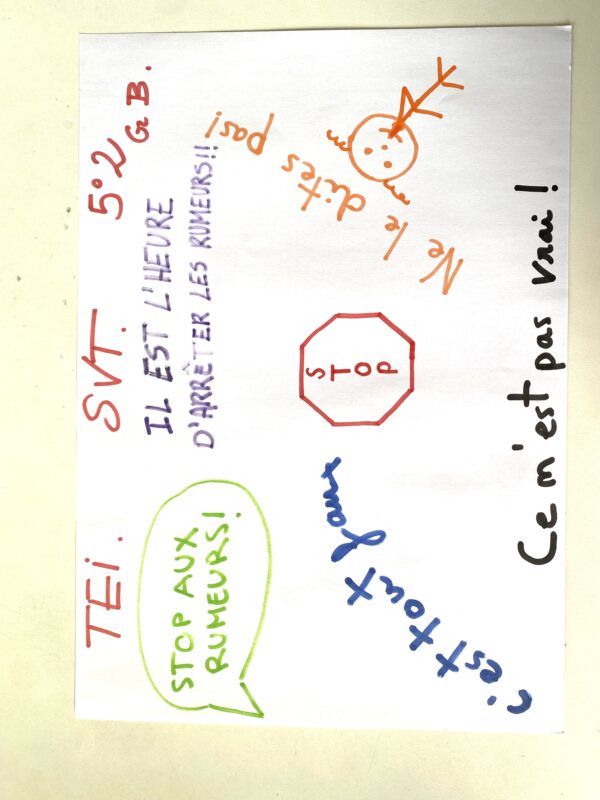 TEI. SVT. 5°2
G B.
IL EST L'HEURE
D'ARRÊTER LES RUMEURS!!
STOP AUX
RUMEURS!
STOP
Ne le dites pas!
c'est tout faux
Ce n'est pas vrai!